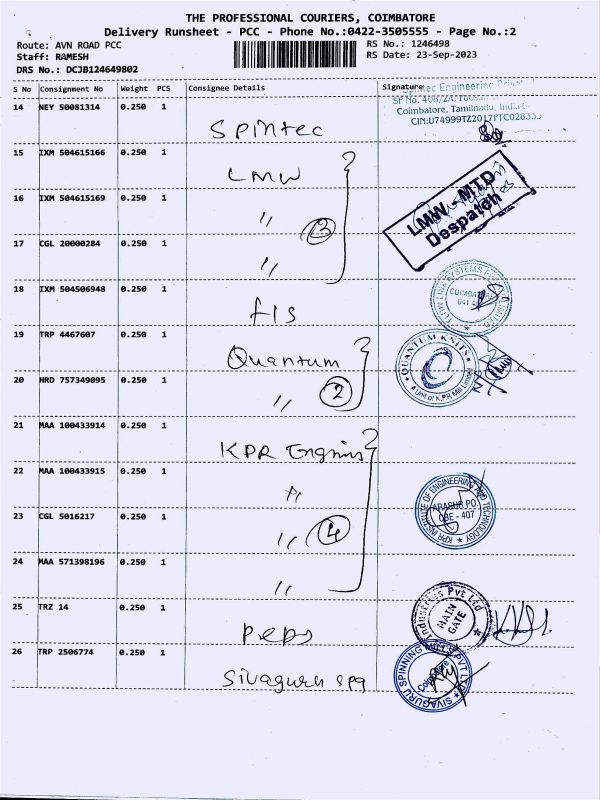 THE PROFESSIONAL COURIERS, COIMBATORE
Delivery Runsheet - PCC - Phone No.:0422-3505555 - Page No.:2
Route: AVN ROAD PCC RS No.: 1246498
Staff: RAMESH RS Date: 23-Sep-2023
DRS No.: DCJB124649802
S No Consignment No Weight PCS Consignee Details Signature
Spintec Engineering
14 NEY 50081314 0.250 1
SF No. 408/2A,
Coimbatore, Tamilnadu,
Spintec
CIN:U74999TZ2017PTC028335
15 IXM 504615166 0.250 1
LMW
16 IXM 504615169 0.250 1
〃 3
LMW - MTD
Despatch
17 CGL 20000284 0.250 1
〃
18 IXM 504506948 0.250 1
fls
FLOW LINK SYSTEMS
COIMBATORE
641
19 TRP 4467607 0.250 1
Quantum
QUANTUM KNITS
A Unit of K.P.R Mill Limited
20 HRD 757349095 0.250 1
〃 2
21 MAA 100433914 0.250 1
KPR
22 MAA 100433915 0.250 1
〃
KPR INSTITUTE OF ENGINEERING AND TECHNOLOGY
ARASUR PO.
CBE - 407
23 CGL 5016217 0.250 1
〃 4
24 MAA 571398196 0.250 1
〃
25 TRZ 14 0.250 1
Peps
Industries Pvt Ltd
MAIN
GATE
26 TRP 2506774 0.250 1
Sivaguru spg
SIVAGURU SPINNING MILLS PVT LTD
Coimbatore